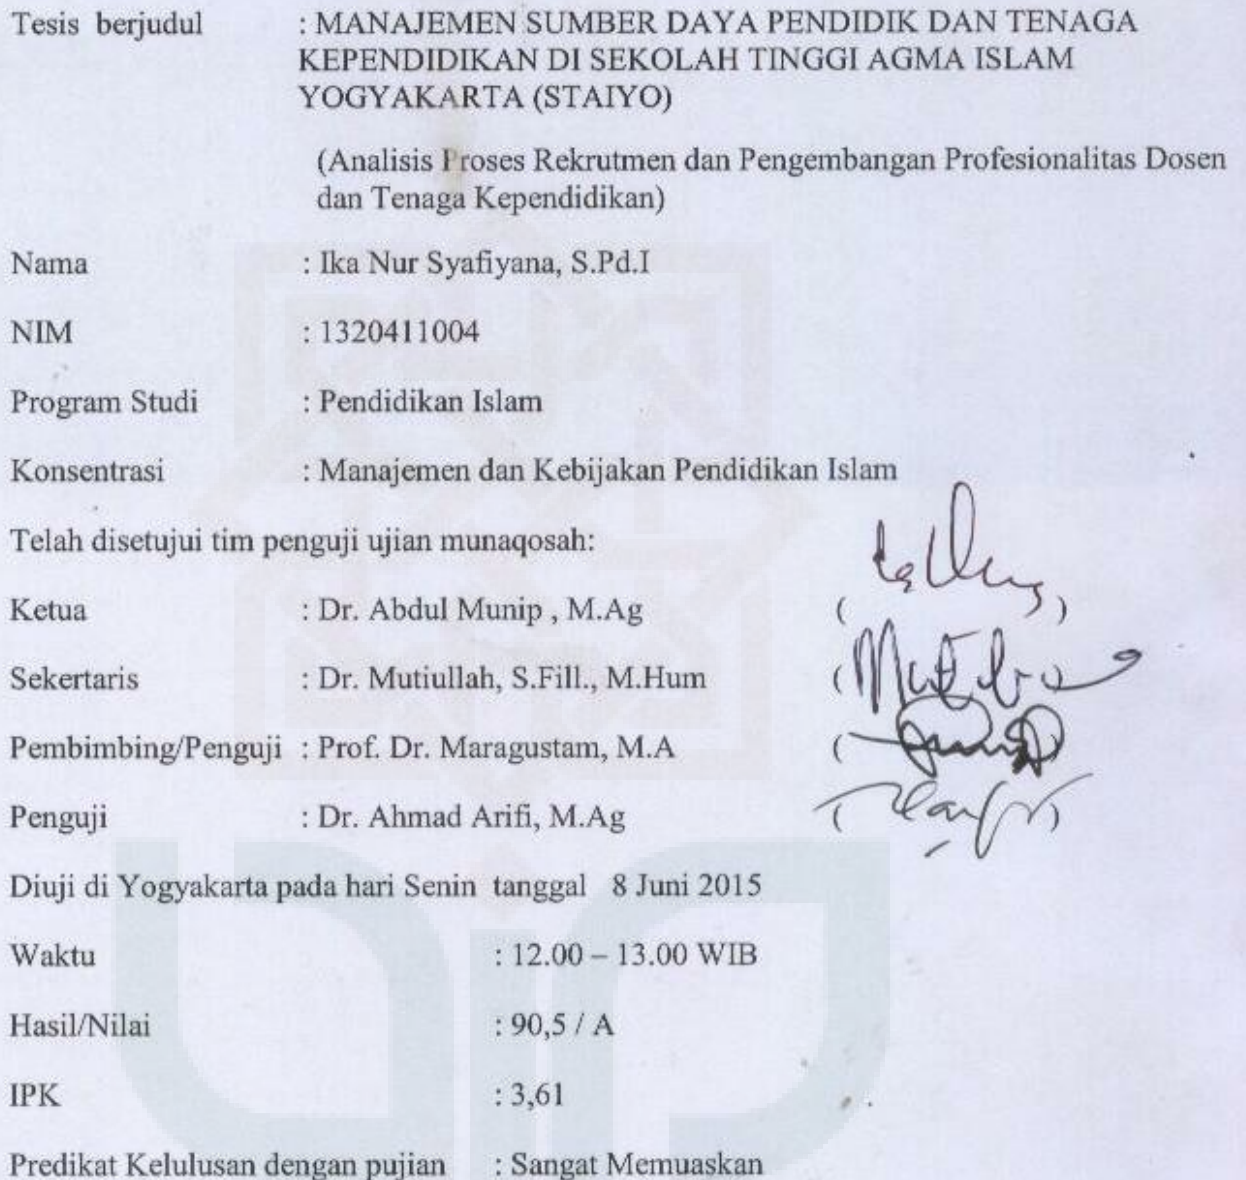 Tesis berjudul : MANAJEMEN SUMBER DAYA PENDIDIK DAN TENAGA
KEPENDIDIKAN DI SEKOLAH TINGGI AGMA ISLAM
YOGYAKARTA (STAIYO)
(Analisis Proses Rekrutmen dan Pengembangan Profesionalitas Dosen
dan Tenaga Kependidikan)
Nama : Ika Nur Syafiyana, S.Pd.I
NIM : 1320411004
Program Studi : Pendidikan Islam
Konsentrasi : Manajemen dan Kebijakan Pendidikan Islam
Telah disetujui tim penguji ujian munaqosah:
Ketua : Dr. Abdul Munip , M.Ag ( )
Sekertaris : Dr. Mutiullah, S.Fill., M.Hum (
Pembimbing/Penguji : Prof. Dr. Maragustam, M.A ( )
Penguji : Dr. Ahmad Arifi, M.Ag ( )
Diuji di Yogyakarta pada hari Senin tanggal 8 Juni 2015
Waktu : 12.00 – 13.00 WIB
Hasil/Nilai : 90,5 / A
IPK : 3,61
Predikat Kelulusan dengan pujian : Sangat Memuaskan